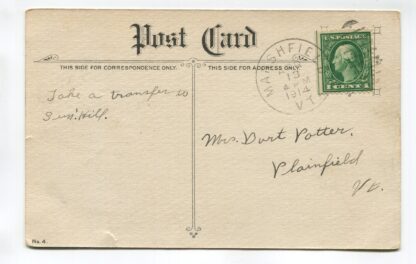 Post Card
THIS SIDE FOR CORRESPONDENCE ONLY.
THIS SIDE IS FOR ADDRESS ONLY.
MARSHFIEL
13
4 PM
1914
VT.
U.S. POSTAGE
1 CENT 1
Take a transfer to
Hill.
Mrs. Dort Potter.
Plainfield
Vt.
No. 4